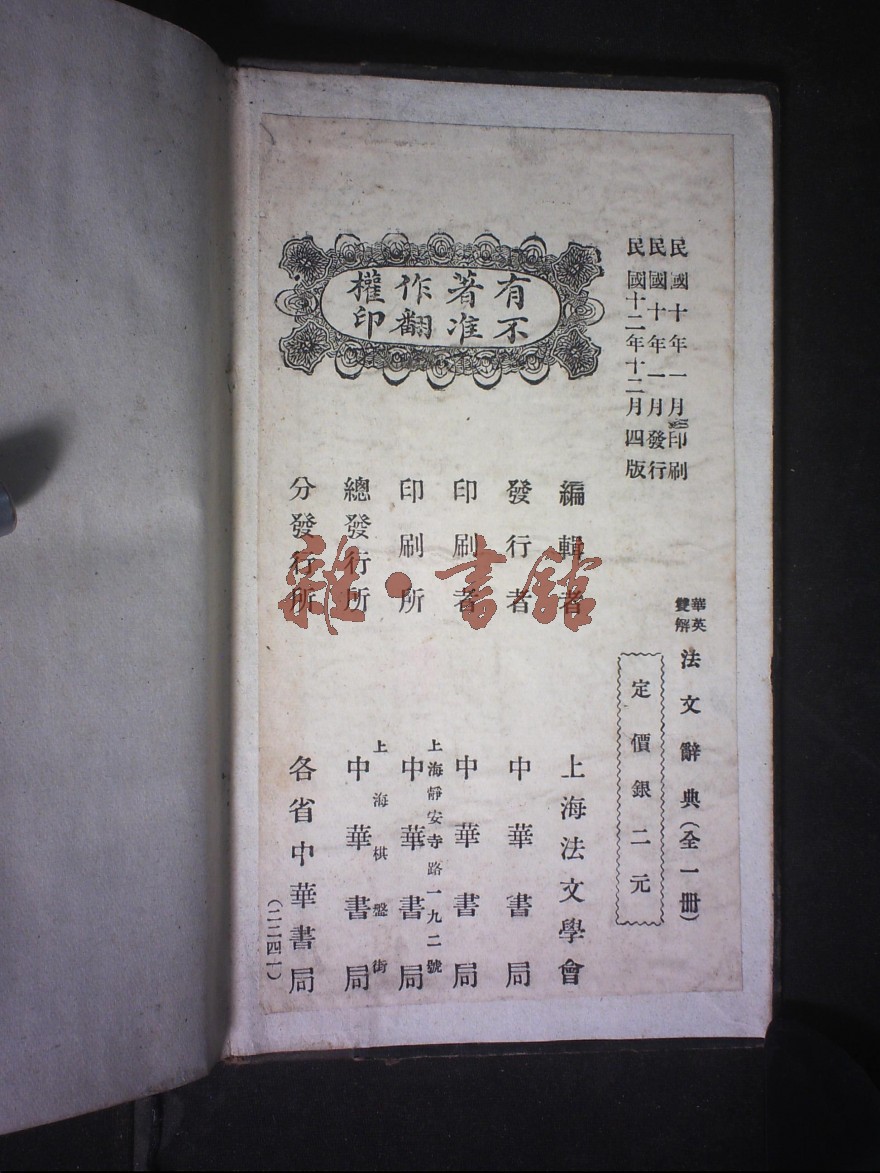 民國十年一月印刷
民國十年一月發行
民國十二年十二月四版
有著作權
不准翻印
華英
雙解
法文辭典(全一冊)
定價銀二元
編輯者 上海法文學會
發行者 中華書局
印刷者 中華書局
上海靜安寺路一九二號
印刷所 中華書局
上海棋盤街
總發行所 中華書局
分發行所 各省中華書局
(二二四一)
雜·書館